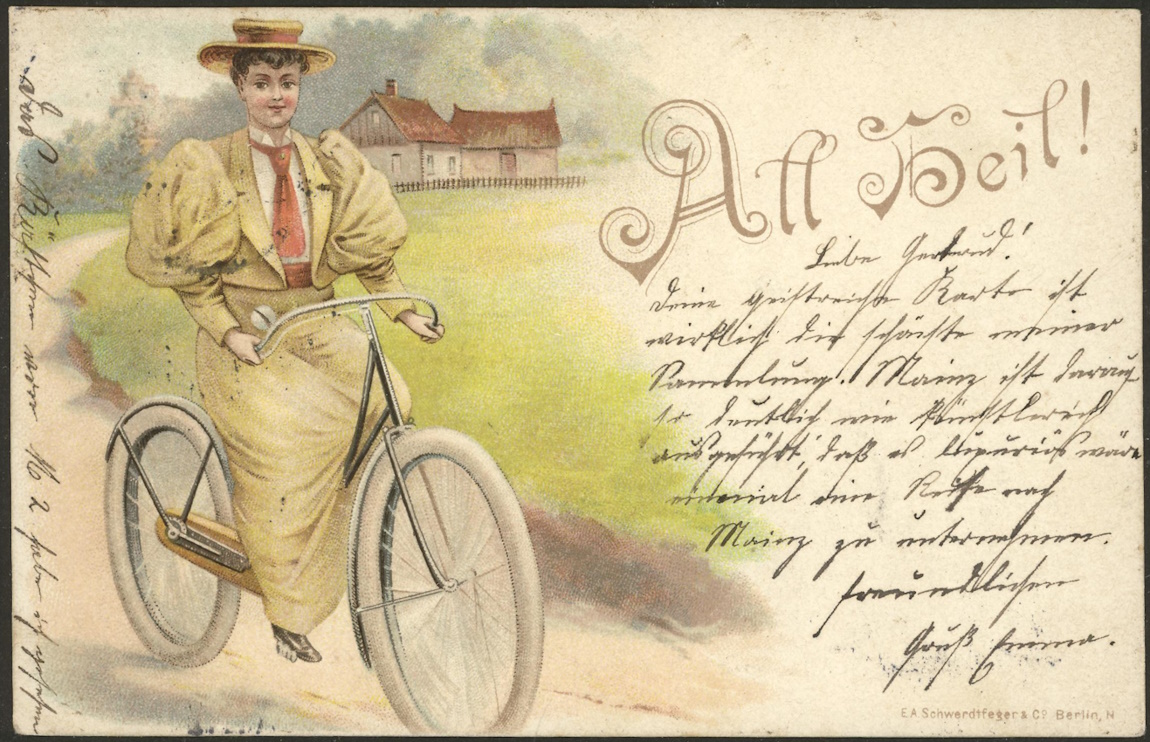 All Heil!
Liebe Gertrud!
Deine geistreiche Karte ist
wirklich die schönste meiner
Sammlung! Mainz ist darauf
so deutlich wie künstlerisch
ausgeführt, daß es luxuriös wäre
einmal eine Reise nach
Mainz zu unternehmen.
freundlichen
Gruß Emma.
E.A. Schwerdtfeger & Co. Berlin, N